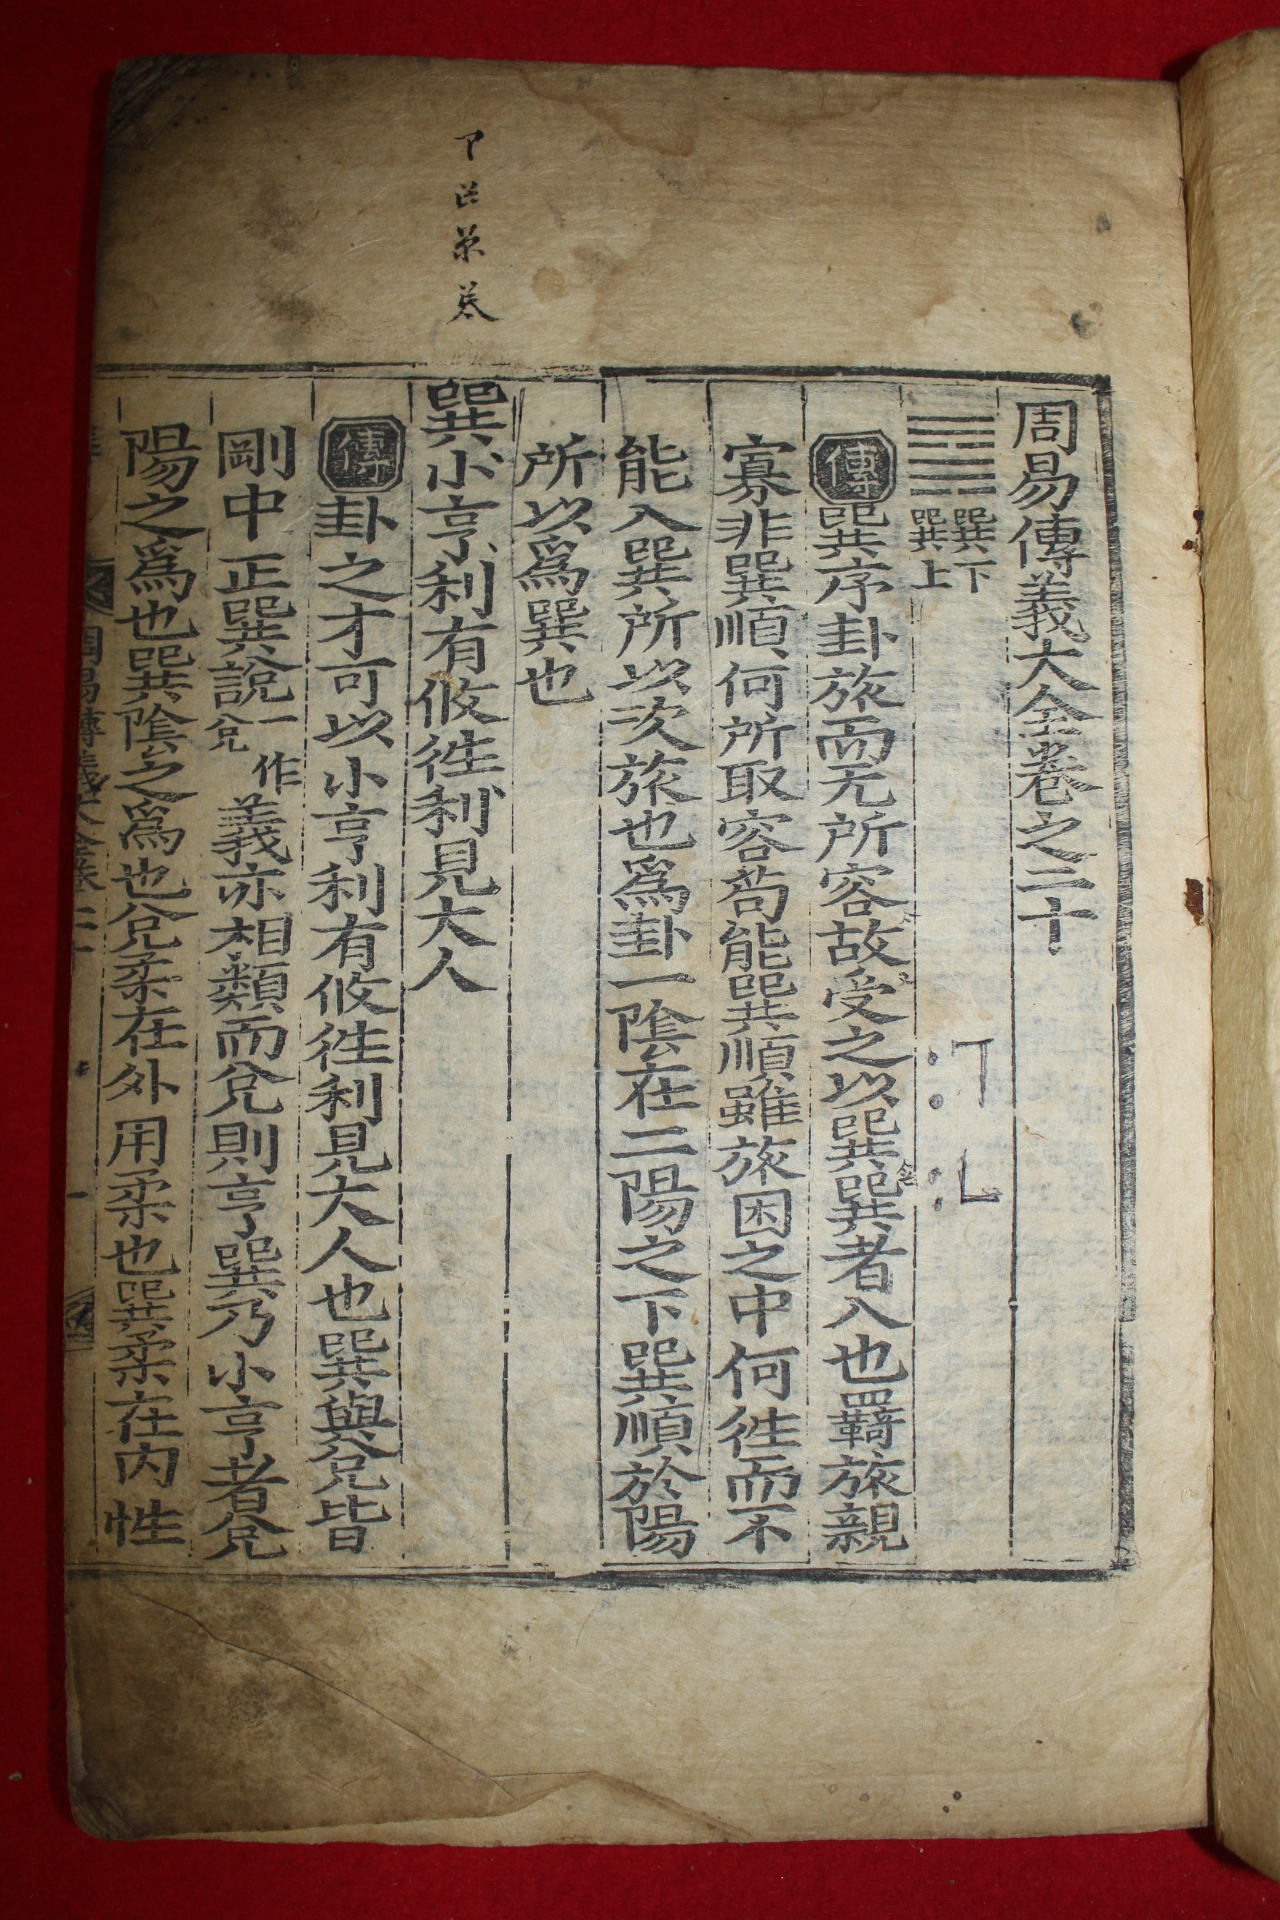 周易傳義大全卷之二十
巽下
巽上
傳巽序卦旅而无所容故受之以巽巽者入也羇旅親
寡非巽順何所取容苟能巽順雖旅困之中何徃而不
能入巽所以次旅也爲卦一陰在二陽之下巽順於陽
所以爲巽也
巽小亨利有攸徃利見大人
傳卦之才可以小亨利有攸徃利見大人也巽與兌皆
剛中正巽說一作兌義亦相類而兌則亨巽乃小亨者兌
陽之爲也巽陰之爲也兌柔在外用柔也巽柔在內性
周易傳義大全卷二十 一